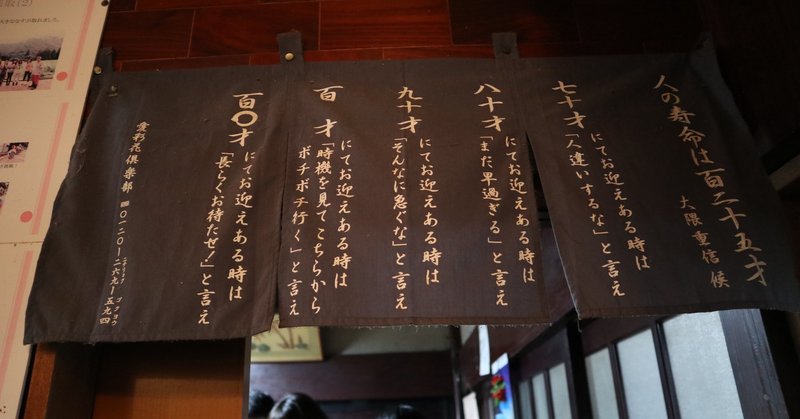 人の寿命は百二十五才
大隈重信候
七十才にてお迎えある時は
「人違いするな」と言え
八十才にてお迎えある時は
「まだ早過ぎる」と言え
九十才にてお迎えある時は
「そんなに急ぐな」と言え
百才にてお迎えある時は
「時機を見てこちらから
ボチボチ行く」と言え
百〇才にてお迎えある時は
「長らくお待たせ!」と言え
愛彩花倶楽部 ☎〇一二〇ー二六九ー五九四